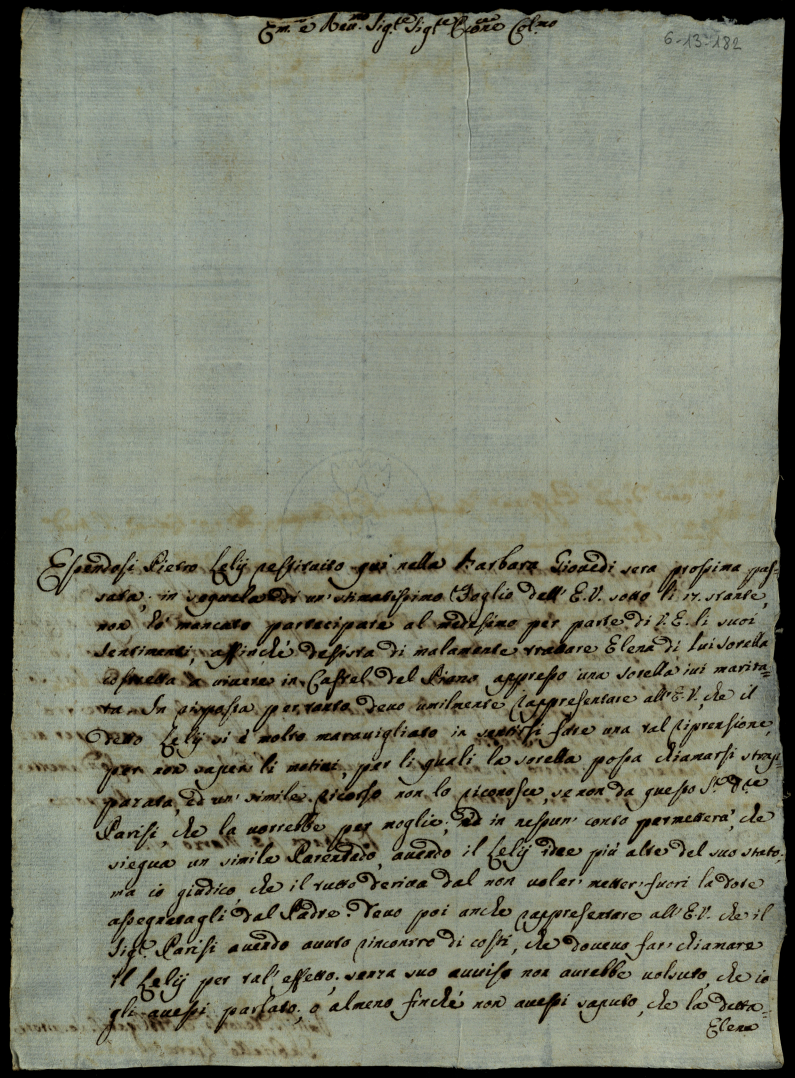 Em.o e Rev.mo Sig.re Sig.re P̃rone Col.mo
6-13-182
Essendosi Pietro Lelij restituito quì nella Barbara Giovedì sera prossima pas=
sata, in seguela di un' stimatissimo Foglio dell' E.V. sotto li 17. stante,
non hò mancato partecipare al medesimo per parte di V.E. li suoi
sentimenti, affinché desista di malamente trattare Elena di lui sorella
costretta a vivere in Castel del Piano appresso una sorella ivi marita=
ta. In risposta per tanto devo umilmente rappresentare all' E.V., che il
detto Lelij si è molto maravigliato in sentirsi fare una tal riprensione,
per non saper li motivi, per li quali la sorella possa chiamarsi stra=
pazzata, ed un' simile ricorso non lo riconosce, se non da questo S.r D.re
Parisi, che la vorrebbe per moglie, ed in nessun' conto permetterà, che
siegua un simile Parentado, avendo il Lelij idee più alte del suo stato;
ma io giudico che il tutto deriva dal non voler' metter' fuori la dote
assegnatagli dal Padre. Devo poi anche rappresentare all' E.V. che il
Sig.r Parisi avendo avuto rincontro di costì, che dovevo far' chiamare
il Lelij per tal' effetto, senza suo avviso non avrebbe volsuto, che io
gli avessi parlato, o almeno finché non avessi saputo, che la detta
Elena